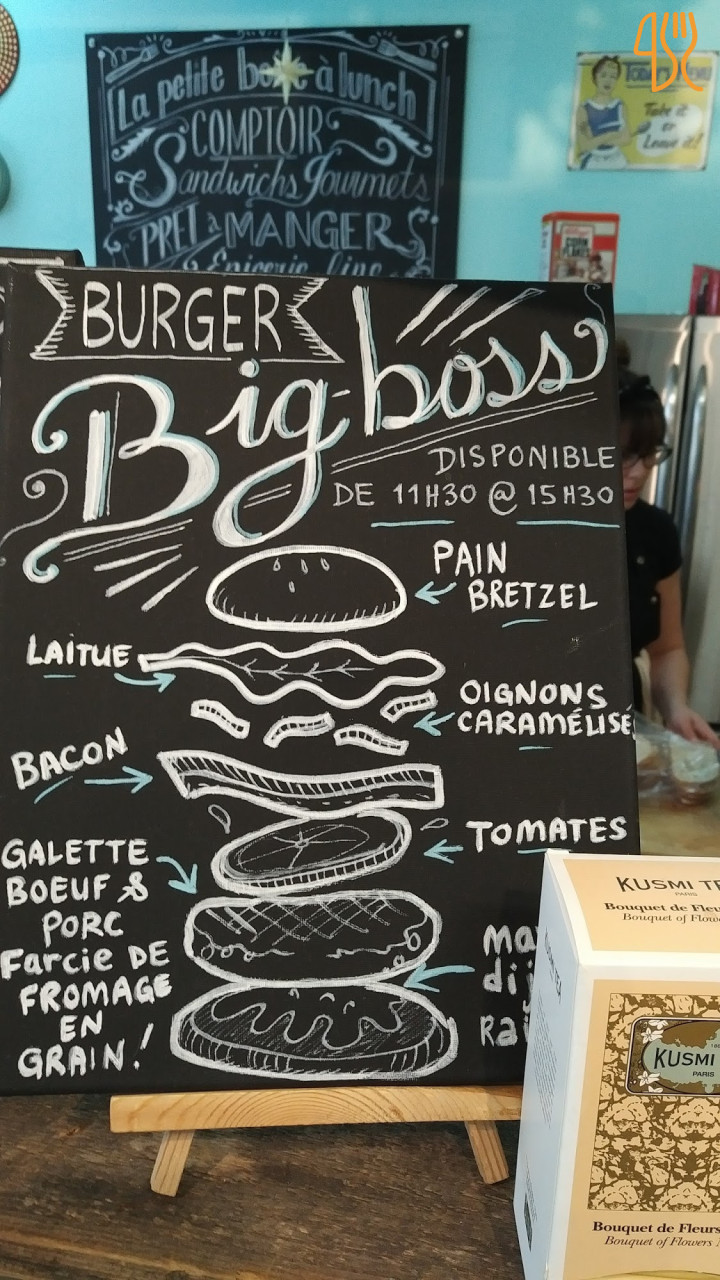 La petite à lunch
COMPTOIR
Sandwichs Gourmets
PRÊT à MANGER
Épicerie fine
Take it
or
Leave it!
CORN
FLAKES
BURGER
Big-boss
DISPONIBLE
DE 11H30 @ 15H30
PAIN
BRETZEL
LAITUE
OIGNONS
CARAMÉLISÉ
BACON
TOMATES
GALETTE
BOEUF &
PORC
Farcie DE
FROMAGE
EN
GRAIN!
KUSMI
PARIS
Bouquet de
Bouquet of
KUSMI
PARIS
Bouquet de Fleurs
Bouquet of Flowers